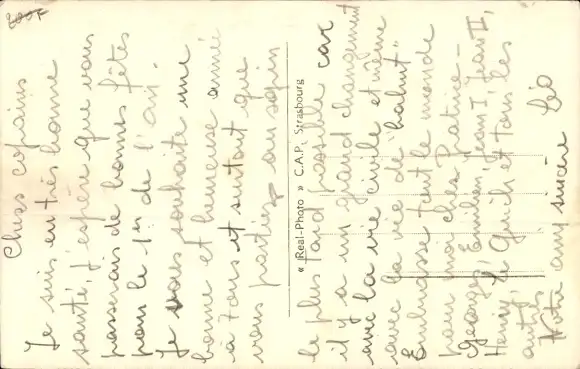 Chers copains
Je suis en très bonne
santé, j'espère que vous
passerais de bonnes fêtes
pour le 1er de l'an.
Je vous souhaite une
bonne et heureuse année
à tous et surtout que
vous partiez au sapin
« Real-Photo » C.A.P. Strasbourg
le plus tard possible car
il y a un grand changement
avec la vie civile et même
avec la vie de "bahut"
Embrasse tout le monde
pour moi cher Patrice -
Georges, Emilien, Jean I, Jean II,
Henry, le Guich et tous les
autres
Votre ami sincère Léo